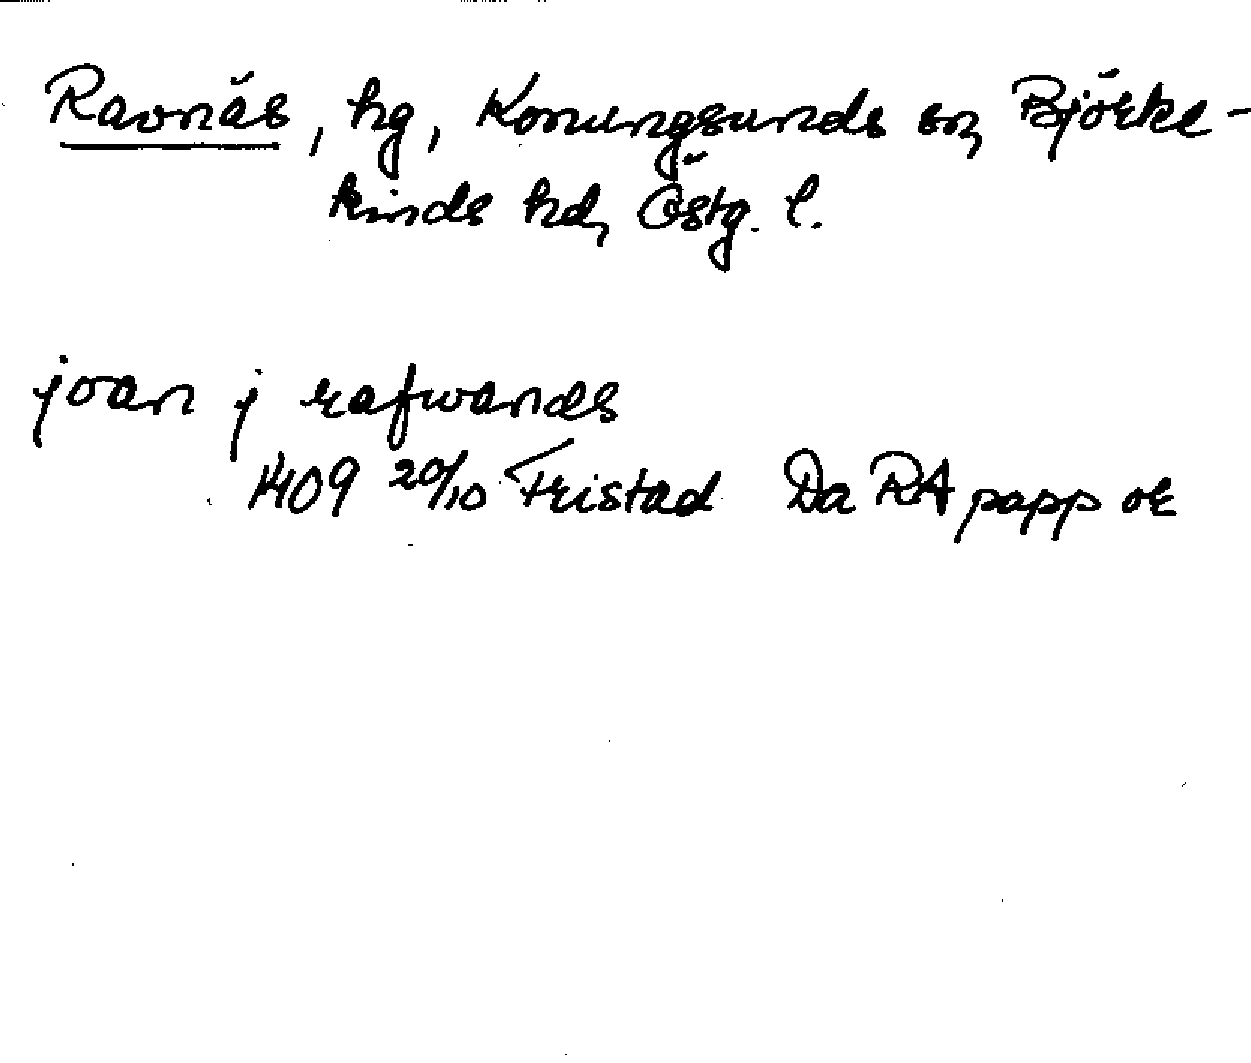 Ravnäs, hg, Konungsunds sn, Björke-
kinds hd, Östg. l.
joan j rafwands
1409 20/10 Fristad Da RA papp or